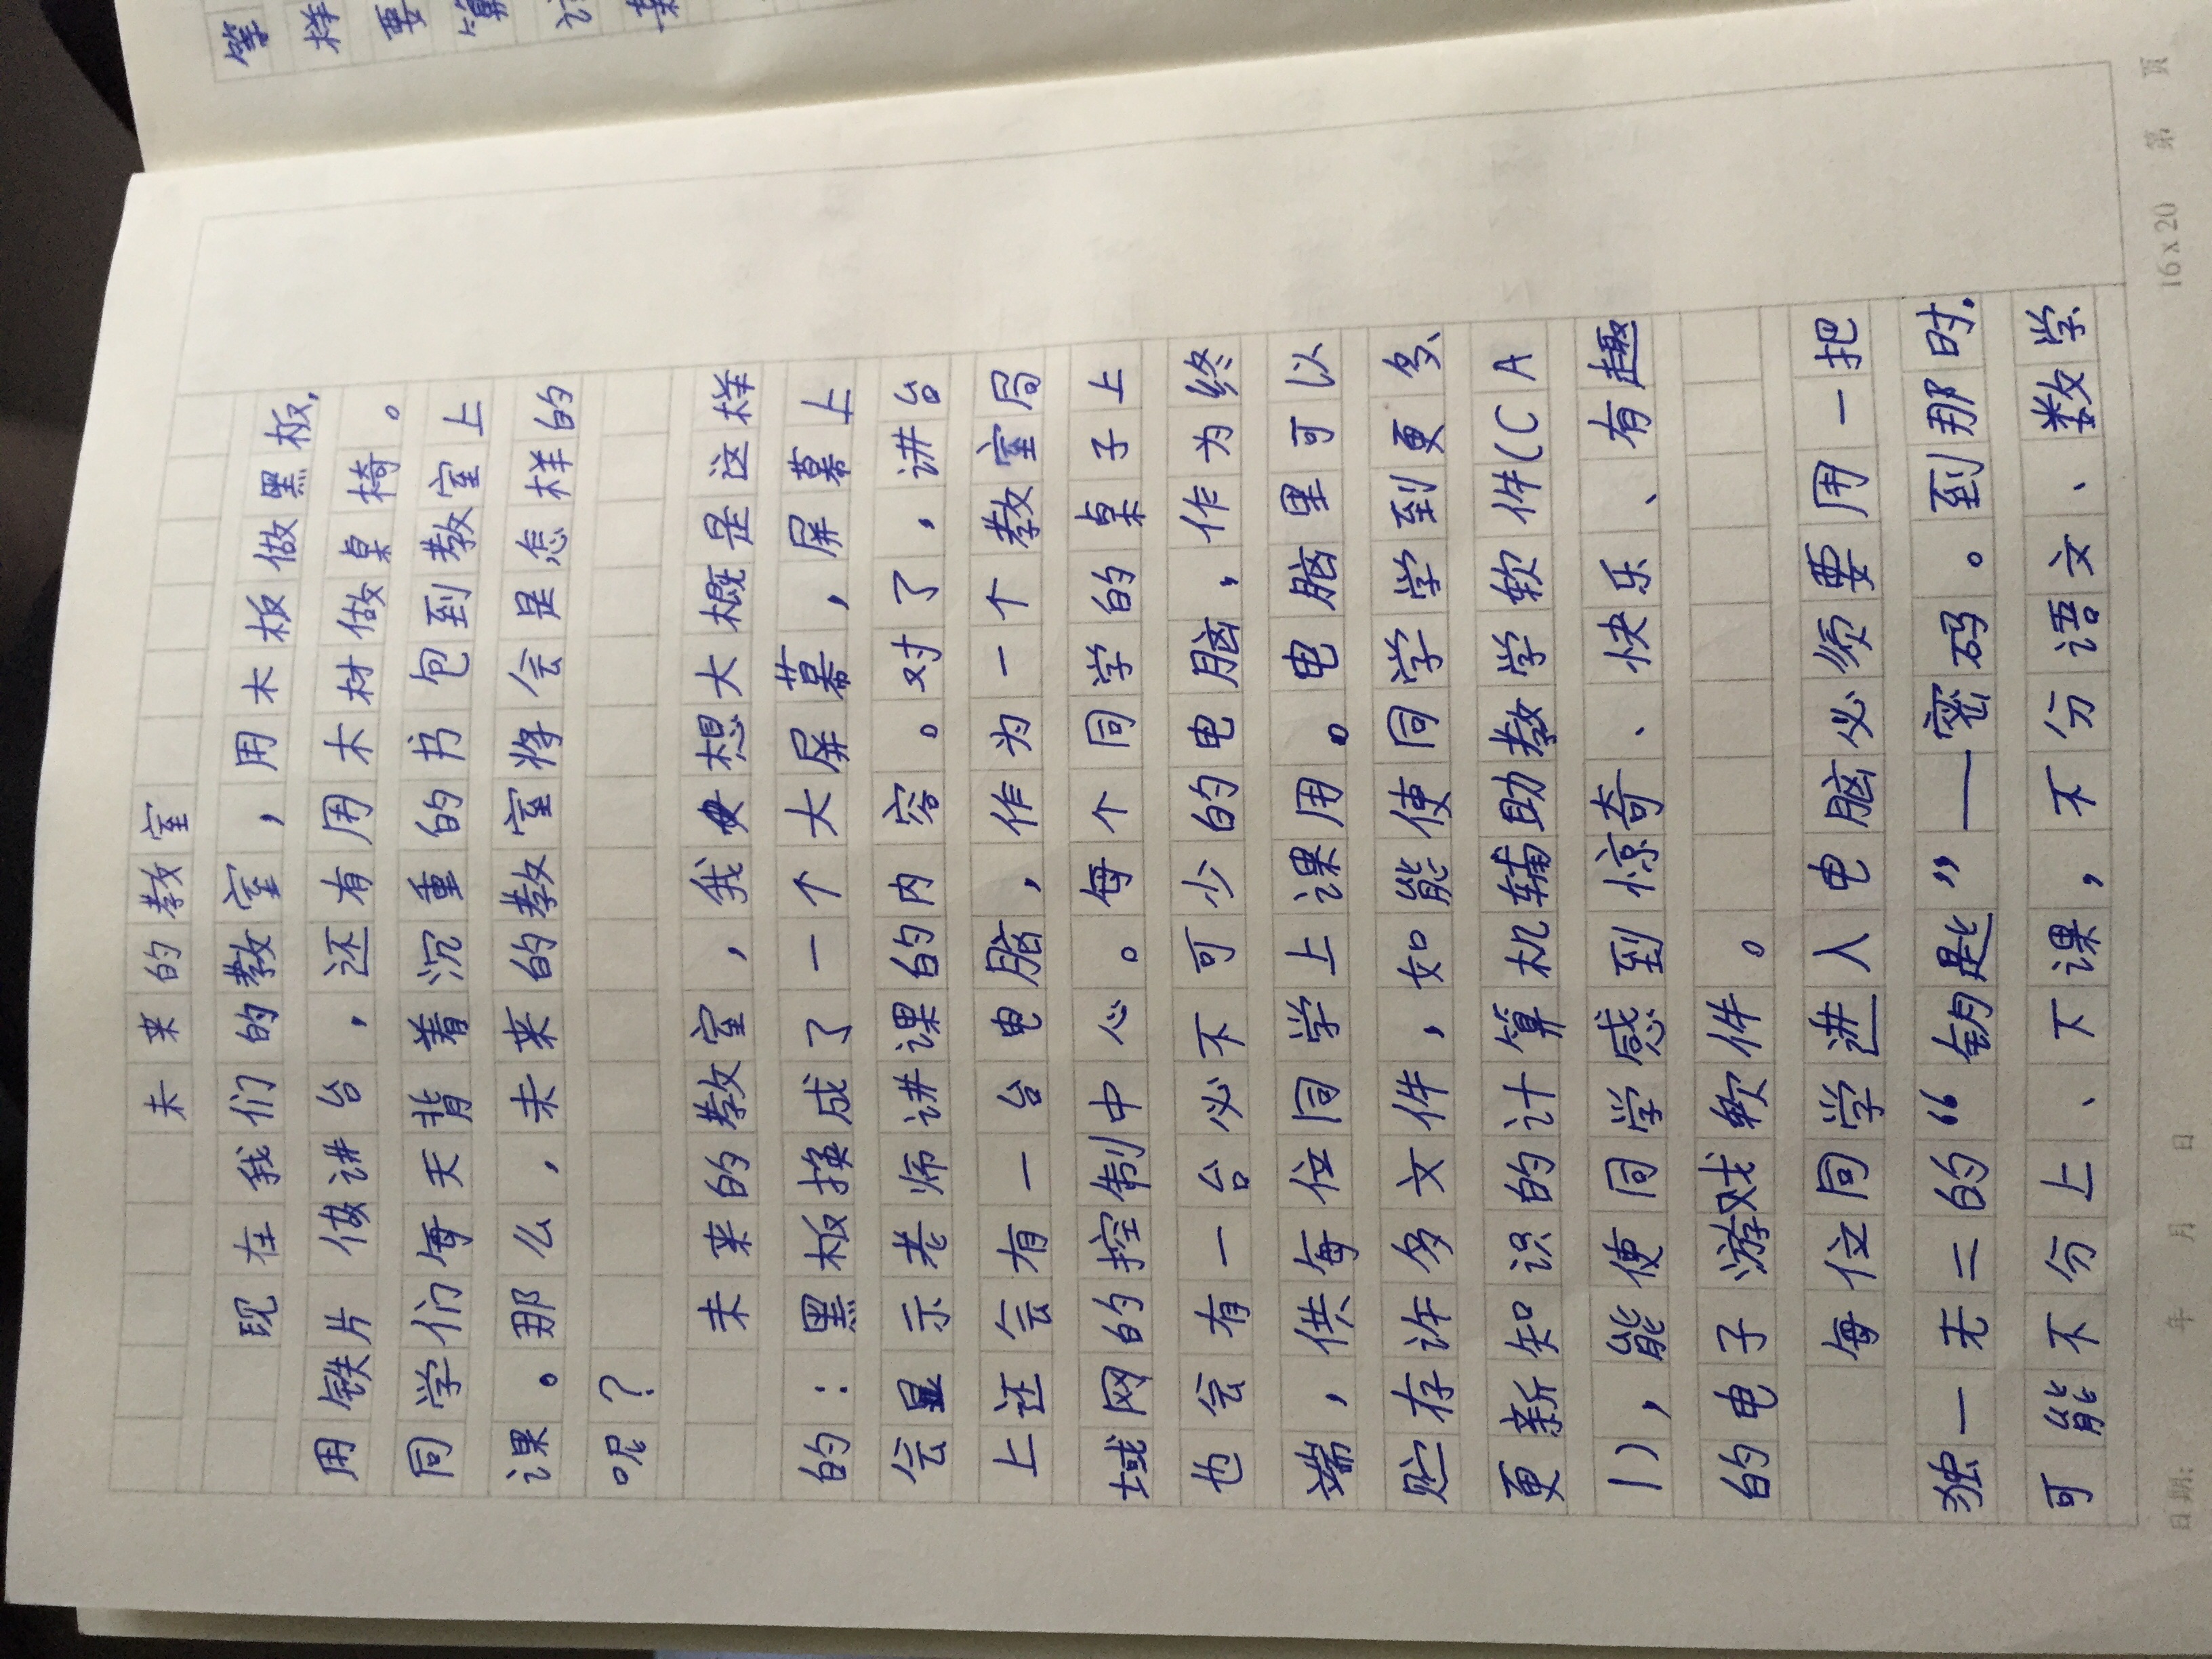 未来的教室
现在我们的教室，用木板做黑板，
用铁片做讲台，还有用木材做桌椅。
同学们每天背着沉重的书包到教室上
课。那么，未来的教室将会是怎样的
呢？
未来的教室，我想大概是这样
的：黑板换成了一个大屏幕，屏幕上
会显示老师讲课的内容。对了，讲台
上还会有一台电脑，作为一个教室局
域网的控制中心。每个同学的桌子上
也会有一台必不可少的电脑，作为终
端，供每位同学上课用。电脑里可以
贮存许多文件，如能使同学学到更多、
更新知识的计算机辅助教学软件(CA
I)，能使同学感到惊奇、快乐、有趣
的电子游戏软件。
每位同学进入电脑必须要用一把
独一无二的“钥匙”——密码。到那时，
可能不分上、下课，不分语文、数学
日期： 年 月 日 16x20 第 页
等
样
要
算